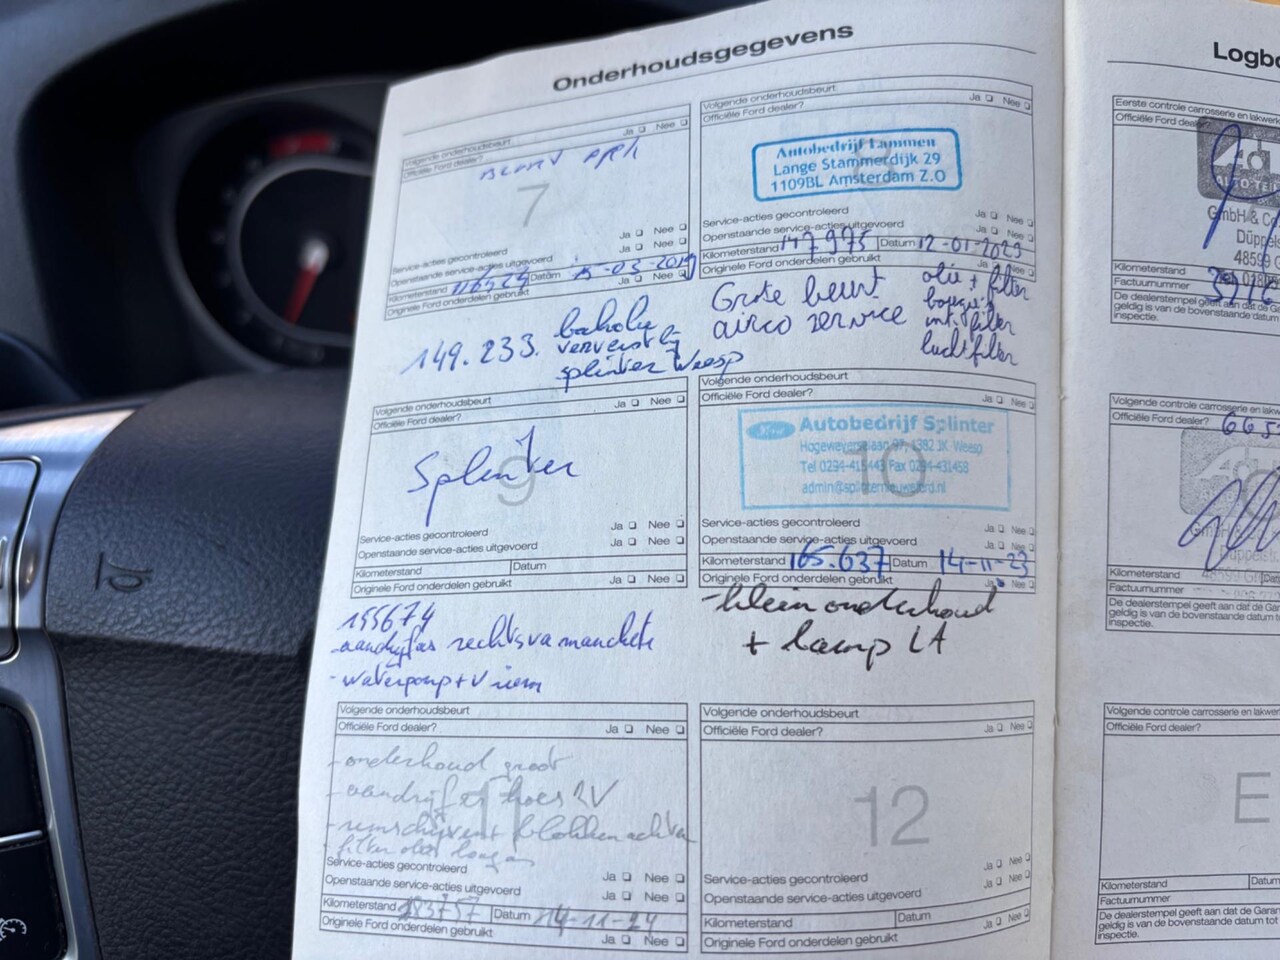 Onderhoudsgegevens
Volgende onderhoudsbeurt
Officiële Ford dealer? Ja Nee
7
Service-acties gecontroleerd Ja Nee
Openstaande service-acties uitgevoerd Ja Nee
Kilometerstand Datum 15-03-2019
Originele Ford onderdelen gebruikt Ja Nee
149.233.
ververst bij
splinter Weesp
Volgende onderhoudsbeurt
Officiële Ford dealer? Ja Nee
Autobedrijf Lammen
Lange Stammerdijk 29
1109BL Amsterdam Z.O
Service-acties gecontroleerd Ja Nee
Openstaande service-acties uitgevoerd Ja Nee
Kilometerstand 147975 Datum 12-01-2023
Originele Ford onderdelen gebruikt Ja Nee
Grote beurt
airco service
olie + filter
bougie's
int. filter
luchtfilter
Volgende onderhoudsbeurt
Officiële Ford dealer? Ja Nee
9
Splinter
Service-acties gecontroleerd Ja Nee
Openstaande service-acties uitgevoerd Ja Nee
Kilometerstand Datum
Originele Ford onderdelen gebruikt Ja Nee
155674
-aandrijfas rechtsva manchete
-waterpomp + V riem
Volgende onderhoudsbeurt
Officiële Ford dealer? Ja Nee
10
Ford
Autobedrijf Splinter
Hogeweyerselaan 97, 1382 JK Weesp
Tel 0294-415443 Fax 0294-431458
Service-acties gecontroleerd Ja Nee
Openstaande service-acties uitgevoerd Ja Nee
Kilometerstand 165.637 Datum 14-11-23
Originele Ford onderdelen gebruikt Ja Nee
-klein onderhoud
+ lamp LA
Volgende onderhoudsbeurt
Officiële Ford dealer? Ja Nee
11
-onderhoud groot
-aandrijfas hoes RV
-remschijven + blokken achter
Service-acties gecontroleerd Ja Nee
Openstaande service-acties uitgevoerd Ja Nee
Kilometerstand 183757 Datum 14-11-24
Originele Ford onderdelen gebruikt Ja Nee
Volgende onderhoudsbeurt
Officiële Ford dealer? Ja Nee
12
Service-acties gecontroleerd Ja Nee
Openstaande service-acties uitgevoerd Ja Nee
Kilometerstand Datum
Originele Ford onderdelen gebruikt Ja Nee
Logbo
Eerste controle carrosserie en lakwerk
Officiële Ford
GmbH & Co
Düppel
48599
Kilometerstand
Factuurnummer
De dealerstempel geeft aan dat de Gara
geldig is van de bovenstaande datum t
inspectie.
Volgende controle carrosserie en lakwe
Officiële Ford dealer?
Kilometerstand
Factuurnummer
De dealerstempel geeft aan dat de Gara
geldig is van de bovenstaande datum t
inspectie.
Volgende controle carrosserie en lakwe
Officiële Ford dealer?
E
Kilometerstand Datum
Factuurnummer
De dealerstempel geeft aan dat de Garan
geldig is van de bovenstaande datum tot
inspectie.